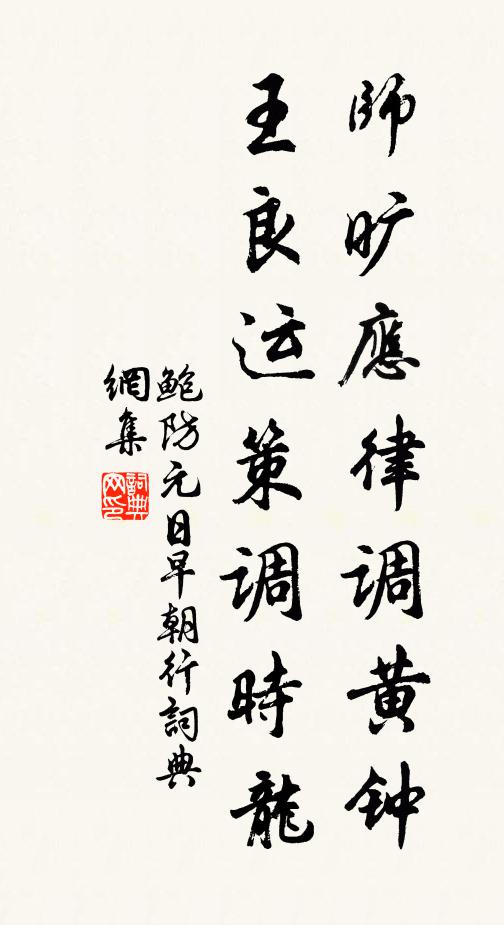 師旷應律调黄钟
王良运策调時龍
鲍防元日早朝行詞典
網集
詞典
网印